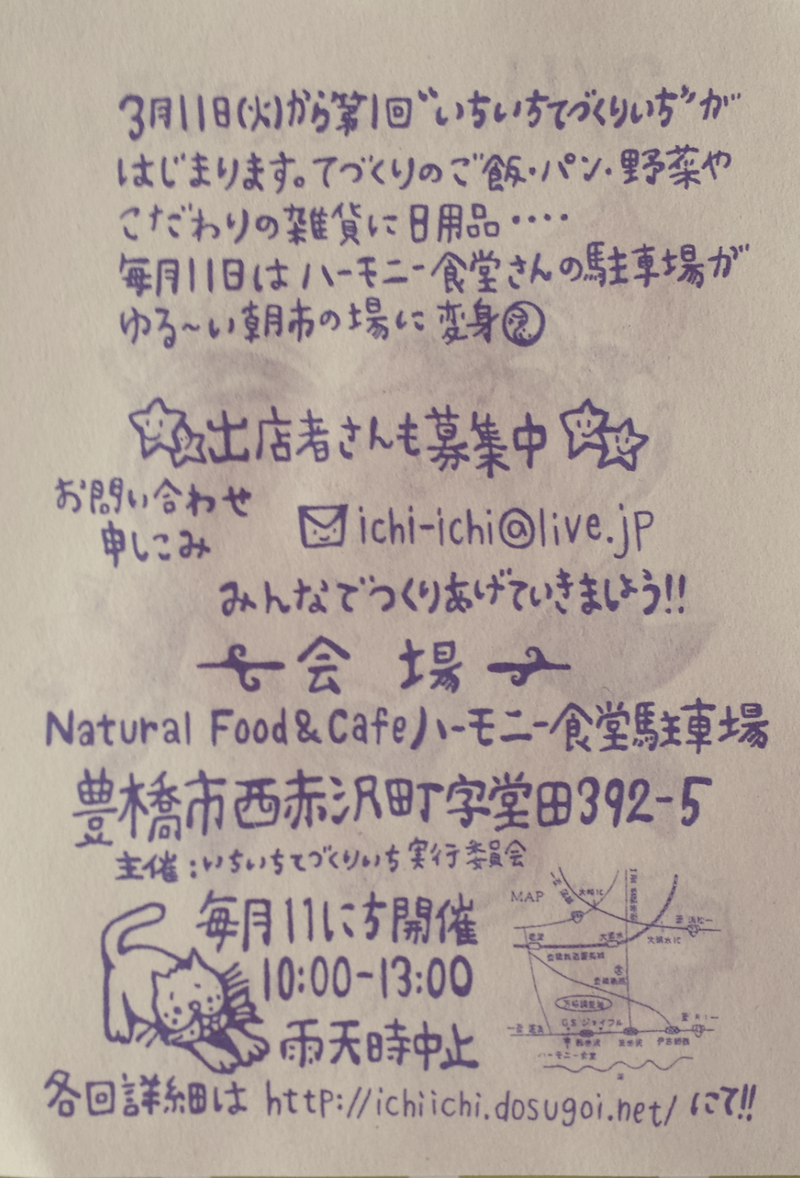 3月11日(火)から第1回“いちいちてづくりいち”が
はじまります。てづくりのご飯・パン・野菜や
こだわりの雑貨に日用品‥‥
毎月11日はハーモニー食堂さんの駐車場が
ゆる〜い朝市の場に変身
出店者さんも募集中
お問い合わせ
申しこみ
ichi-ichi@live.jp
みんなでつくりあげていきましょう!!
会場
Natural Food&Cafeハーモニー食堂駐車場
豊橋市西赤沢町字堂田392-5
主催:いちいちてづくりいち実行委員会
毎月11にち開催
10:00-13:00
雨天時中止
MAP
ハーモニー食堂
各回詳細は http://ichiichi.dosugoi.net/ にて!!